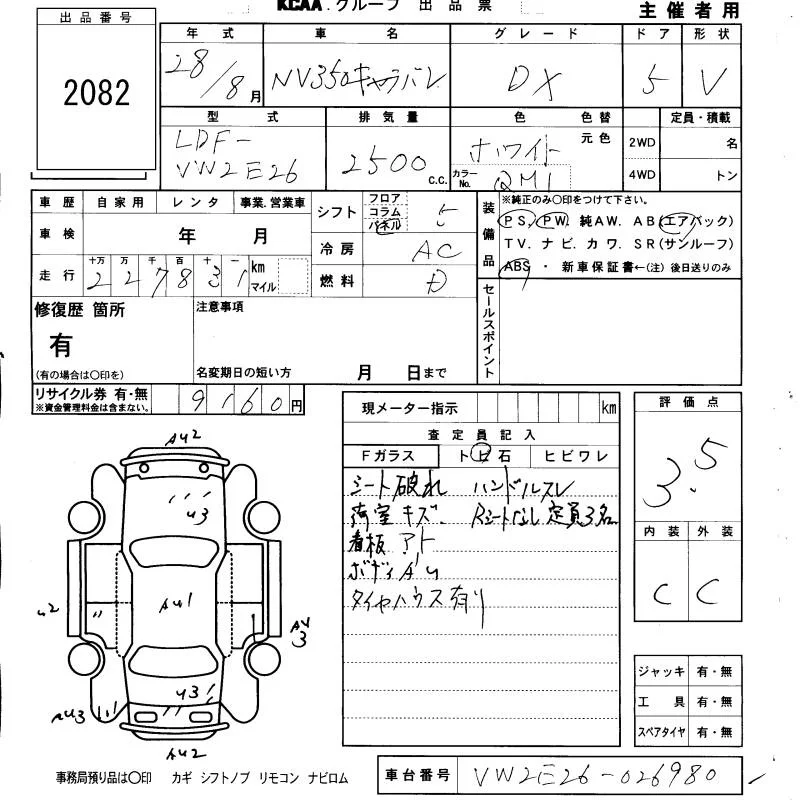 KCAA.グループ 出品票
主催者用
出品番号
2082
年式 車名 グレード ドア 形状
28/8月 NV350キャラバン DX 5 V
型式 排気量 色 色替 定員・積載
LDF-
VW2E26
2500 c.c.
ホワイト 元色
カラーNo. QM1
2WD 名
4WD トン
車歴 自家用 レンタ 事業.営業車
車検 年 月
走行 十万 万 千 百 十 一
227831 km マイル
シフト フロア コラム パネル 5
冷房 AC
燃料 D
装備品
※純正のみ○印をつけて下さい。
PS. PW. 純AW. AB(エアバック)
TV. ナビ. カワ. SR(サンルーフ)
ABS ・ 新車保証書←(注) 後日送りのみ
修復歴 箇所
有
(有の場合は○印を)
注意事項
名変期日の短い方 月 日まで
セールスポイント
リサイクル券 有・無
※資金管理料金は含まない。
9160円
現メーター指示 km
査定員記入
Fガラス ト ビ 石 ヒビワレ
シート破れ ハンドルスレ
荷室キズ. Rシートなし 定員3名
看板アト
ボディAU
タイヤハウス有り
評価点
3.5
内装 外装
C C
ジャッキ 有・無
工具 有・無
スペアタイヤ 有・無
AU2
U3
U2
AU1
AU3
U3
AU3
AU2
事務局預り品は○印 カギ シフトノブ リモコン ナビロム
車台番号 VW2E26-026980